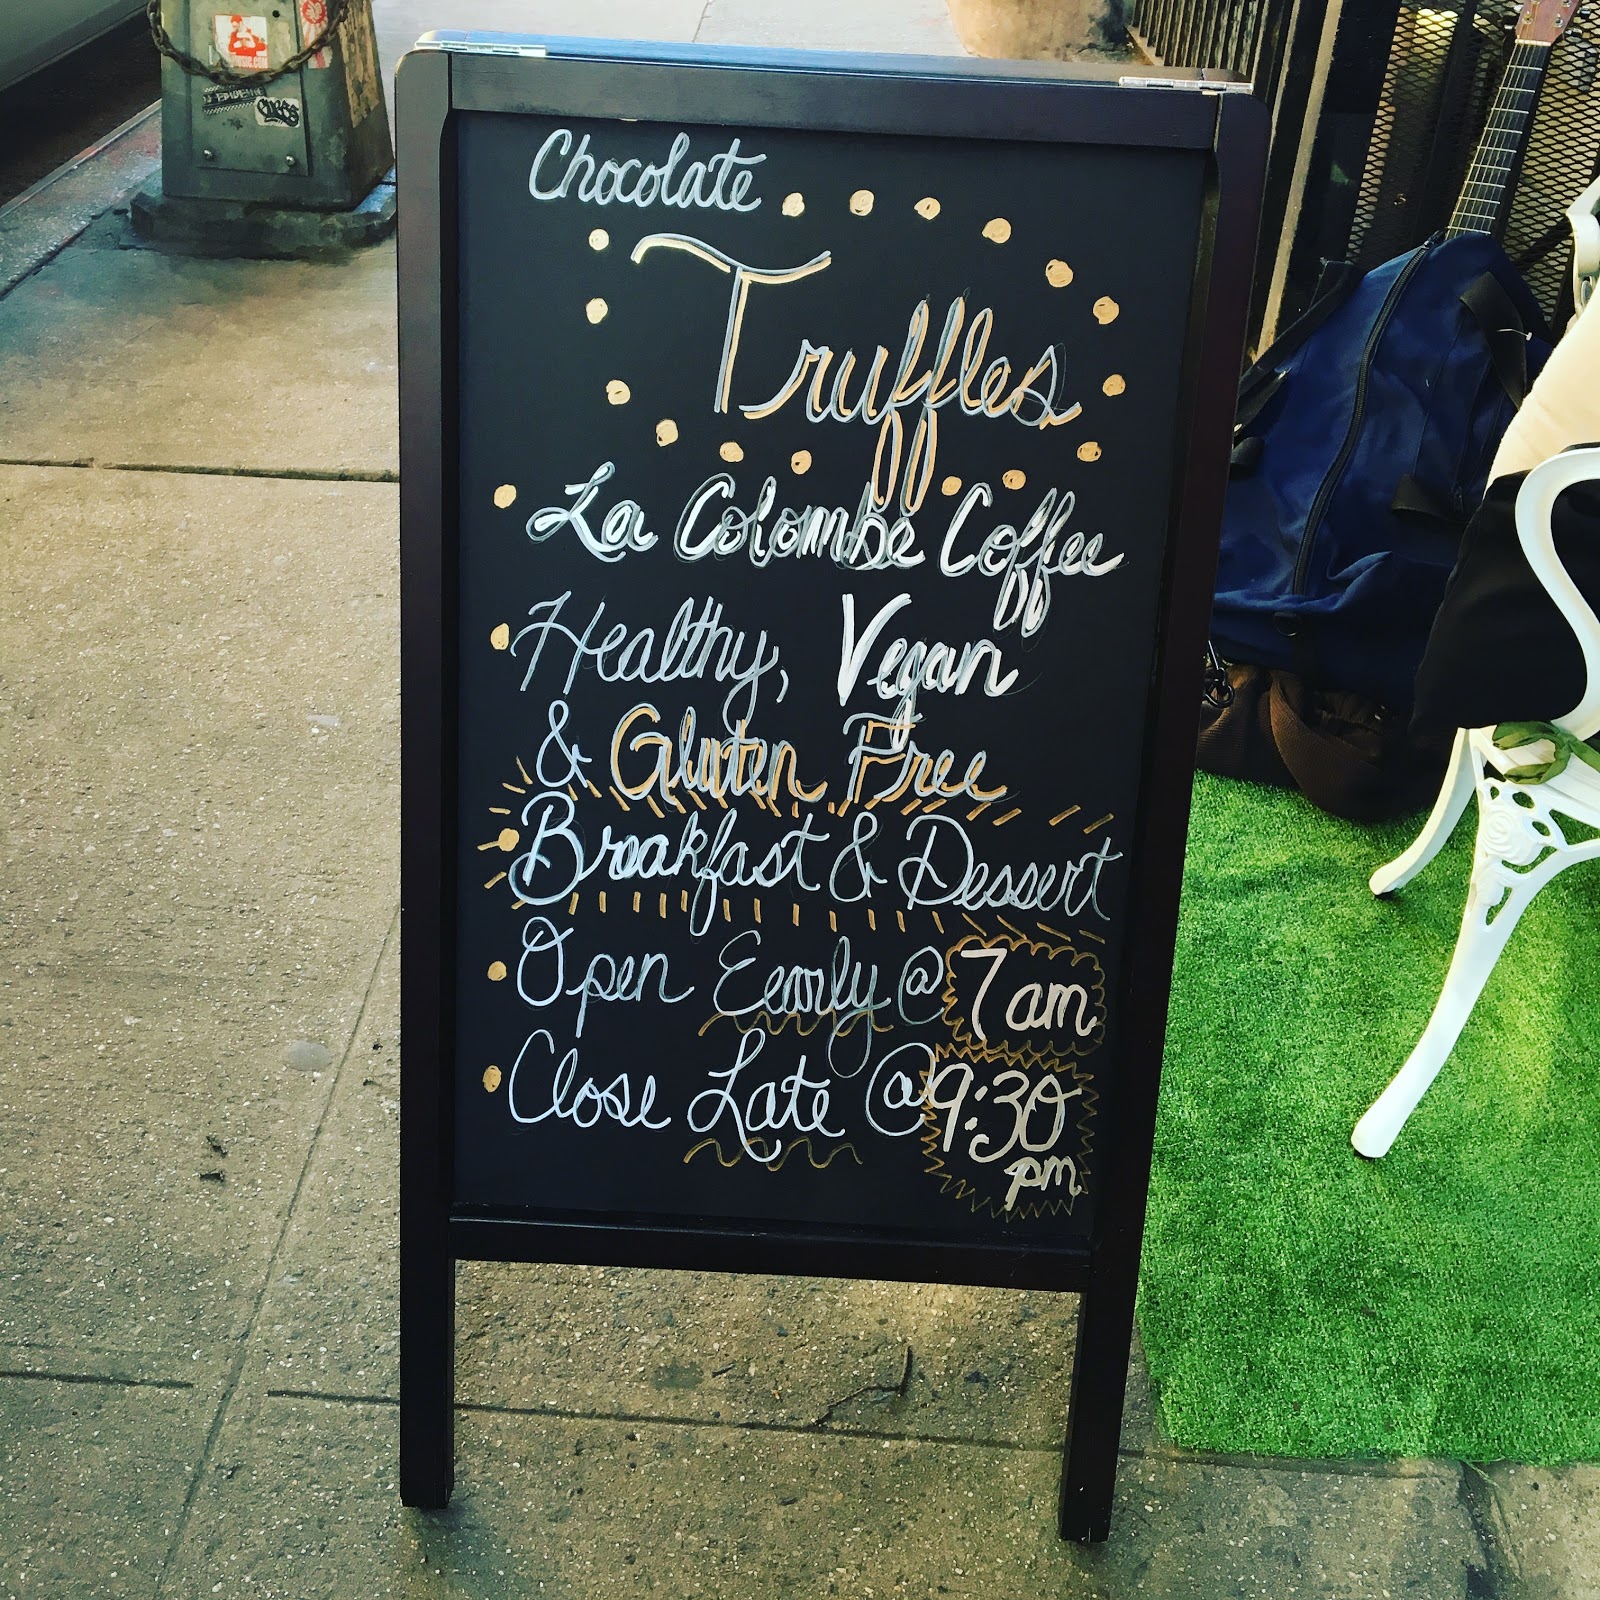 Chocolate
Truffles
La Colombe Coffee
Healthy, Vegan
& Gluten Free
Breakfast & Dessert
Open Eearly @ 7am
Close Late @ 9:30
pm